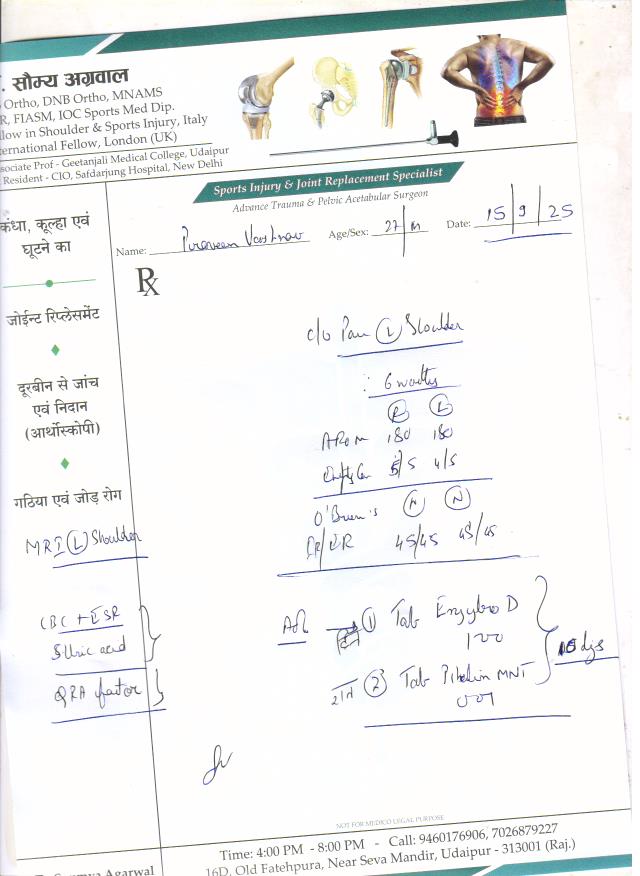 . सौम्य अग्रवाल
Ortho, DNB Ortho, MNAMS
R, FIASM, IOC Sports Med Dip.
llow in Shoulder & Sports Injury, Italy
ternational Fellow, London (UK)
ssociate Prof - Geetanjali Medical College, Udaipur
Resident - CIO, Safdarjung Hospital, New Delhi
Sports Injury & Joint Replacement Specialist
Advance Trauma & Pelvic Acetabular Surgeon
Name: Age/Sex: 27/M Date: 15/9/25
Rx
कंधा, कूल्हा एवं
घूटने का
जोईन्ट रिप्लेसमेंट
दूरबीन से जांच
एवं निदान
(आर्थोस्कोपी)
गठिया एवं जोड़ रोग
MRI (L) Shoulder
CBC + ESR
S. Uric acid
RA factor
c/o Pain (L) Shoulder
(R) (L)
AROM 180 180
5/5 4/5
O'Brien's (N) (N)
IR/ER 45/45 45/45
(1) Tab D
100
(2) Tab MNT
001
NOT FOR MEDICO LEGAL PURPOSE
Agarwal
Time: 4:00 PM - 8:00 PM - Call: 9460176906, 7026879227
16D, Old Fatehpura, Near Seva Mandir, Udaipur - 313001 (Raj.)